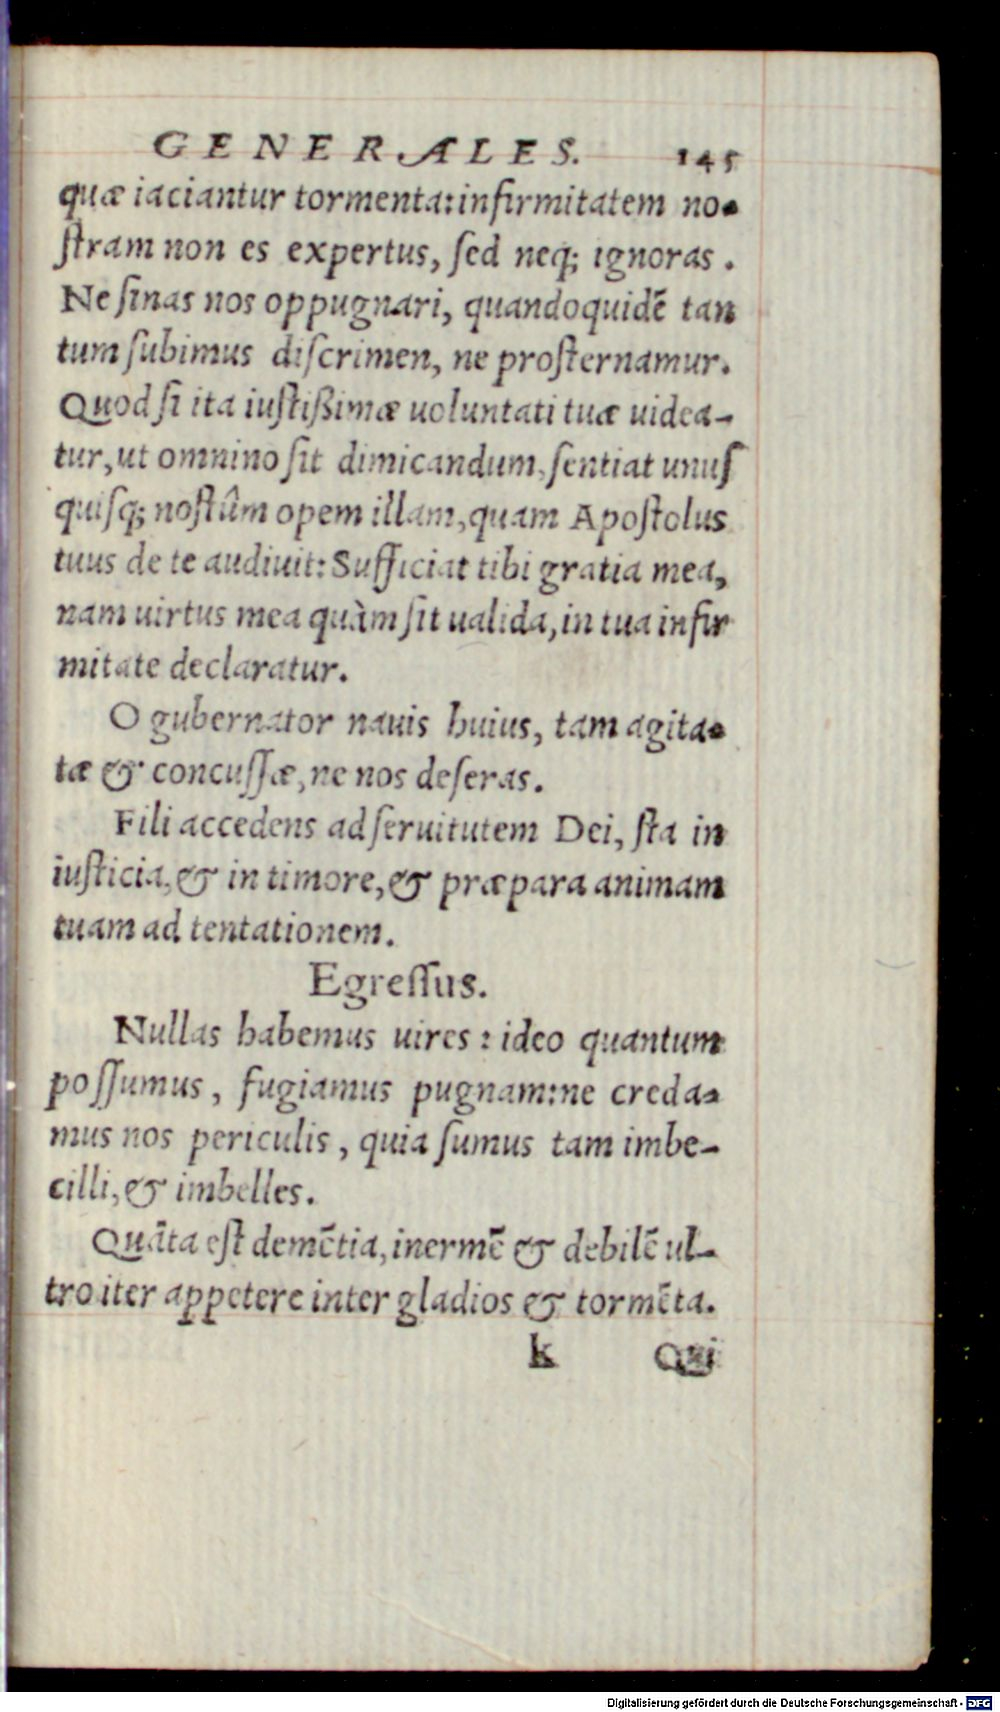 GENERALES. 145
quæ iaciantur tormenta: infirmitatem no-
ſtram non es expertus, ſed neq; ignoras.
Ne ſinas nos oppugnari, quandoquidē tan
tum ſubimus diſcrimen, ne proſternamur.
Quod ſi ita iuſtißimæ uoluntati tuæ uidea-
tur, ut omnino ſit dimicandum, ſentiat unuſ
quiſq; noſtûm opem illam, quam Apoſtolus
tuus de te audiuit: Sufficiat tibi gratia mea,
nam uirtus mea quàm ſit ualida, in tua infir
mitate declaratur.
O gubernator nauis huius, tam agita-
tæ & concuſſæ, ne nos deſeras.
Fili accedens ad ſeruitutem Dei, ſta in
iuſticia, & in timore, & præpara animam
tuam ad tentationem.
Egreſſus.
Nullas habemus uires: ideo quantum
poſſumus, fugiamus pugnam: ne creda-
mus nos periculis, quia ſumus tam imbe-
cilli, & imbelles.
Quāta eſt demētia, inermē & debilē ul-
tro iter appetere inter gladios & tormēta.
k Qui
Digitalisierung gefördert durch die Deutsche Forschungsgemeinschaft - DFG